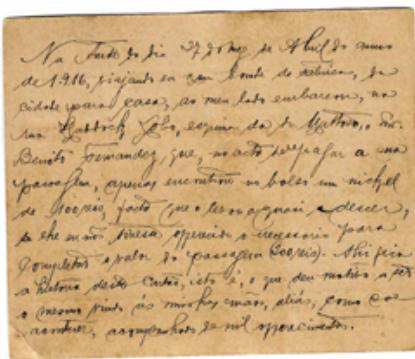 Na tarde do dia 27 do mez de Abril do anno
de 1916, viajando eu num bonde de, da
cidade para casa, ao meu lado embarcou, na
rua Haddock Lobo, esquina da de Mattoso, o snr.
Benito Fernandez, que, no acto de pagar a sua
passagem, apenas encontrou no bolso um nickel
de 100 reis, facto que o levou a quasi descer,
se lhe eu não tivesse offerecido o necessario para
completar o valor da passagem (200 reis). Ahi fica
a historia deste cartão, isto é, o que deu motivo a
o mesmo vindo ás minhas mãos, aliás, como
acontecer, acompanhado de mil agradecimentos.